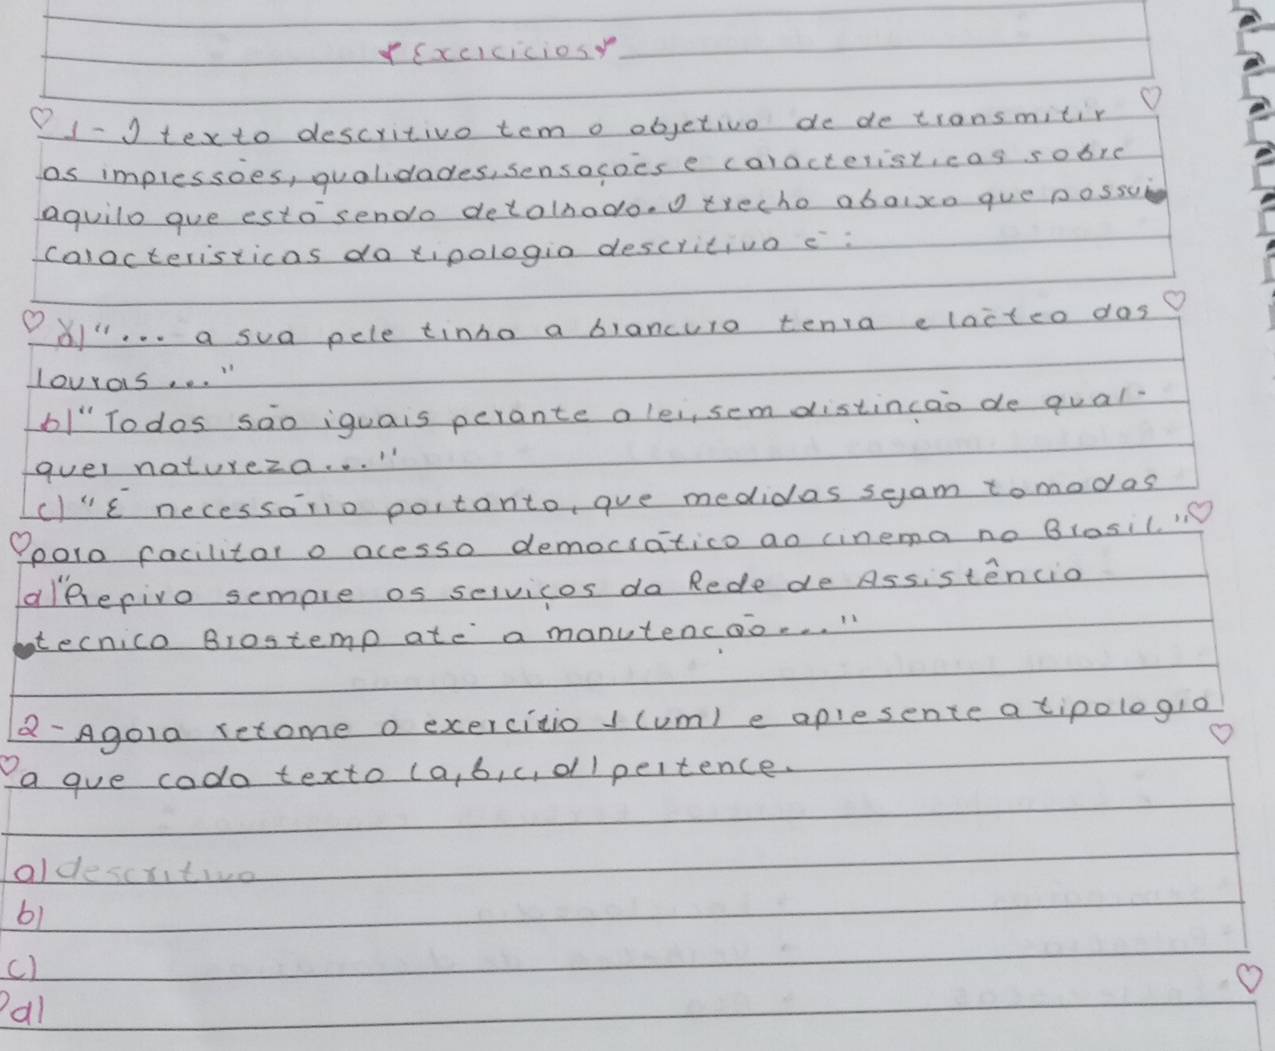 Exercicios
1- O texto descritivo tem o objetivo de de transmitir
as impressões, qualidades, sensações e caracteristicas sobre
aquilo que está sendo detalhado. O trecho abaixo que possui
caracteristicas da tipologia descritiva é:
a) "... a sua pele tinha a brancura tenra e lactea das
louras..."
b) "Todos são iguais perante a lei, sem distinção de qual-
quer natureza..."
c) "É necessário portanto, que medidas sejam tomadas
para facilitar o acesso democrático ao cinema no Brasil."
d) "Prefira sempre os serviços da Rede de Assistência
tecnica Brastemp até a manutenção..."
2- Agora retome o exercício 1 (um) e apresente a tipologia
a que cada texto (a, b, c, d) pertence.
a) descritiva
b)
c)
d)